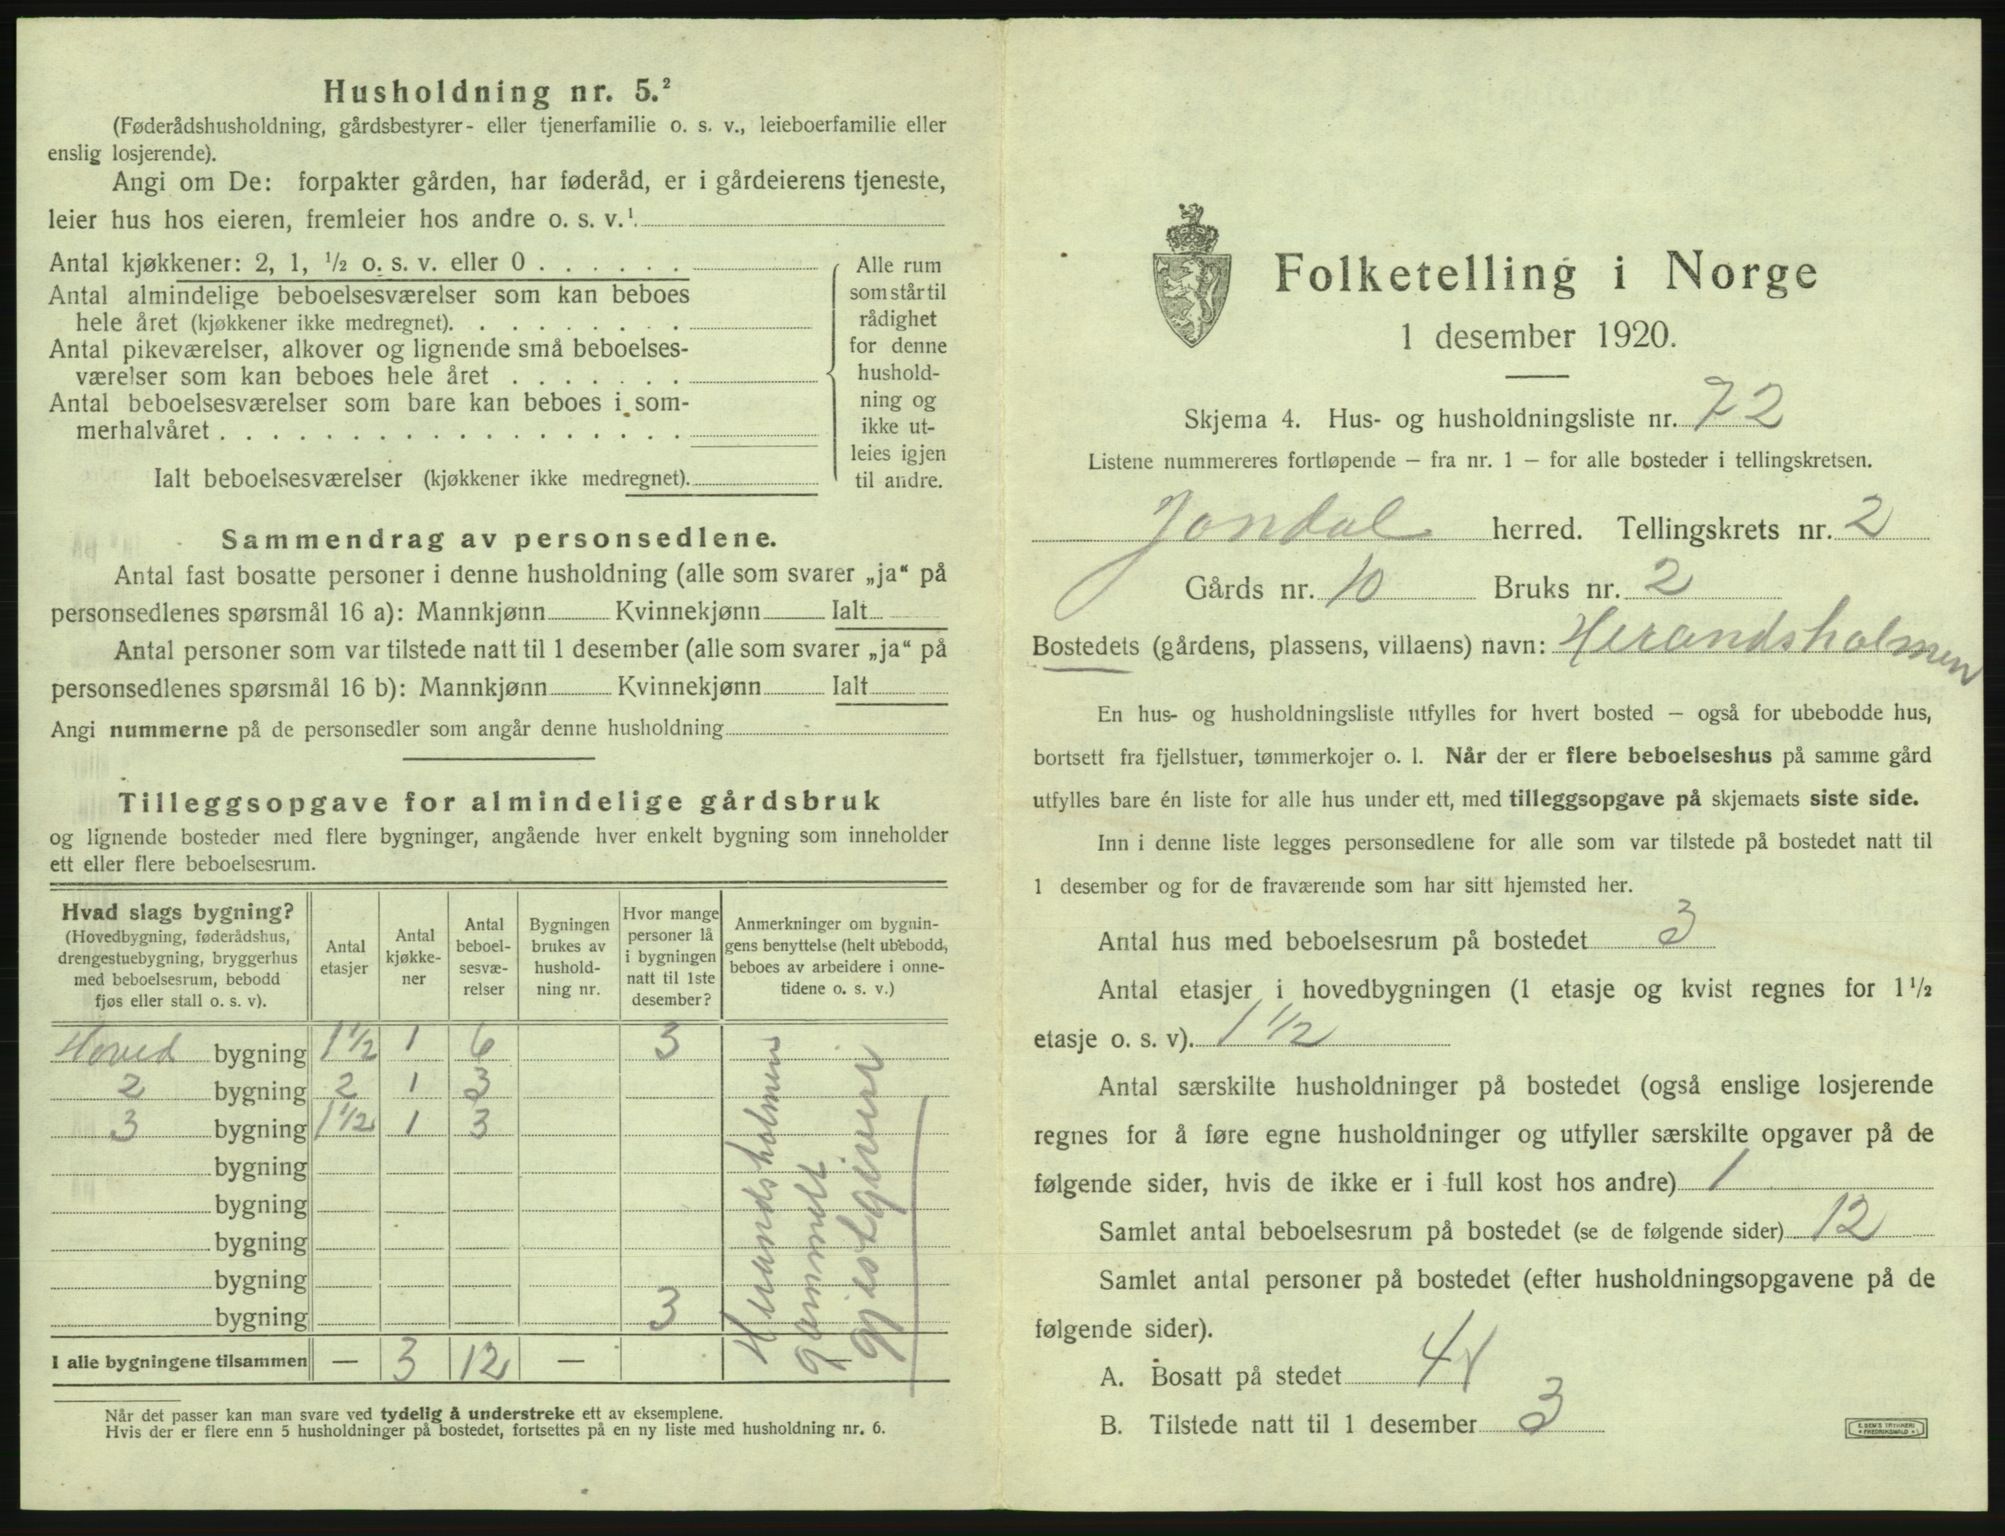 Husholdning nr. 5.²
(Føderådshusholdning, gårdsbestyrer- eller tjenerfamilie o. s. v., leieboerfamilie eller
enslig losjerende).
Angi om De: forpakter gården, har føderåd, er i gårdeierens tjeneste,
leier hus hos eieren, fremleier hos andre o. s. v.¹
Antal kjøkkener: 2, 1, ½ o. s. v. eller 0
Antal almindelige beboelsesværelser som kan beboes
hele året (kjøkkener ikke medregnet).
Antal pikeværelser, alkover og lignende små beboelses-
værelser som kan beboes hele året
Antal beboelsesværelser som bare kan beboes i som-
merhalvåret
Ialt beboelsesværelser (kjøkkener ikke medregnet).
Alle rum
som står til
rådighet
for denne
hushold-
ning og
ikke ut-
leies igjen
til andre.
Sammendrag av personsedlene.
Antal fast bosatte personer i denne husholdning (alle som svarer „ja“ på
personsedlenes spørsmål 16 a): Mannkjønn Kvinnekjønn Ialt
Antal personer som var tilstede natt til 1 desember (alle som svarer „ja“ på
personsedlenes spørsmål 16 b): Mannkjønn Kvinnekjønn Ialt
Angi nummerne på de personsedler som angår denne husholdning
Tilleggsopgave for almindelige gårdsbruk
og lignende bosteder med flere bygninger, angående hver enkelt bygning som inneholder
ett eller flere beboelsesrum.
Hvad slags bygning?
(Hovedbygning, føderådshus,
drengestuebygning, bryggerhus
med beboelsesrum, bebodd
fjøs eller stall o. s. v).
Antal
etasjer
Antal
kjøkke-
ner
Antal
beboel-
sesvæ-
relser
Bygningen
brukes av
hushold-
ning nr.
Hvor mange
personer lå
i bygningen
natt til 1ste
desember?
Anmerkninger om bygnin-
gens benyttelse (helt ubebodd,
beboes av arbeidere i onne-
tidene o. s. v.)
Hoved bygning 1½ 1 6 3
2 bygning 2 1 3
3 bygning 1½ 1 3
bygning
bygning
bygning
bygning
bygning 3
I alle bygningene tilsammen — 3 12 —
Herandsholmen
gammelt
gjestgiveri
Når det passer kan man svare ved tydelig å understreke ett av eksemplene.
Hvis der er flere enn 5 husholdninger på bostedet, fortsettes på en ny liste med husholdning nr. 6.
Folketelling i Norge
1 desember 1920.
Skjema 4. Hus- og husholdningsliste nr. 72
Listene nummereres fortløpende – fra nr. 1 – for alle bosteder i tellingskretsen.
Jondal herred. Tellingskrets nr. 2
Gårds nr. 10 Bruks nr. 2
Bostedets (gårdens, plassens, villaens) navn: Herandsholmen
En hus- og husholdningsliste utfylles for hvert bosted – også for ubebodde hus,
bortsett fra fjellstuer, tømmerkojer o. l. Når der er flere beboelseshus på samme gård
utfylles bare én liste for alle hus under ett, med tilleggsopgave på skjemaets siste side.
Inn i denne liste legges personsedlene for alle som var tilstede på bostedet natt til
1 desember og for de fraværende som har sitt hjemsted her.
Antal hus med beboelsesrum på bostedet 3
Antal etasjer i hovedbygningen (1 etasje og kvist regnes for 1½
etasje o. s. v). 1½
Antal særskilte husholdninger på bostedet (også enslige losjerende
regnes for å føre egne husholdninger og utfyller særskilte opgaver på de
følgende sider, hvis de ikke er i full kost hos andre) 1
Samlet antal beboelsesrum på bostedet (se de følgende sider) 12
Samlet antal personer på bostedet (efter husholdningsopgavene på de
følgende sider).
A. Bosatt på stedet 4
B. Tilstede natt til 1 desember 3